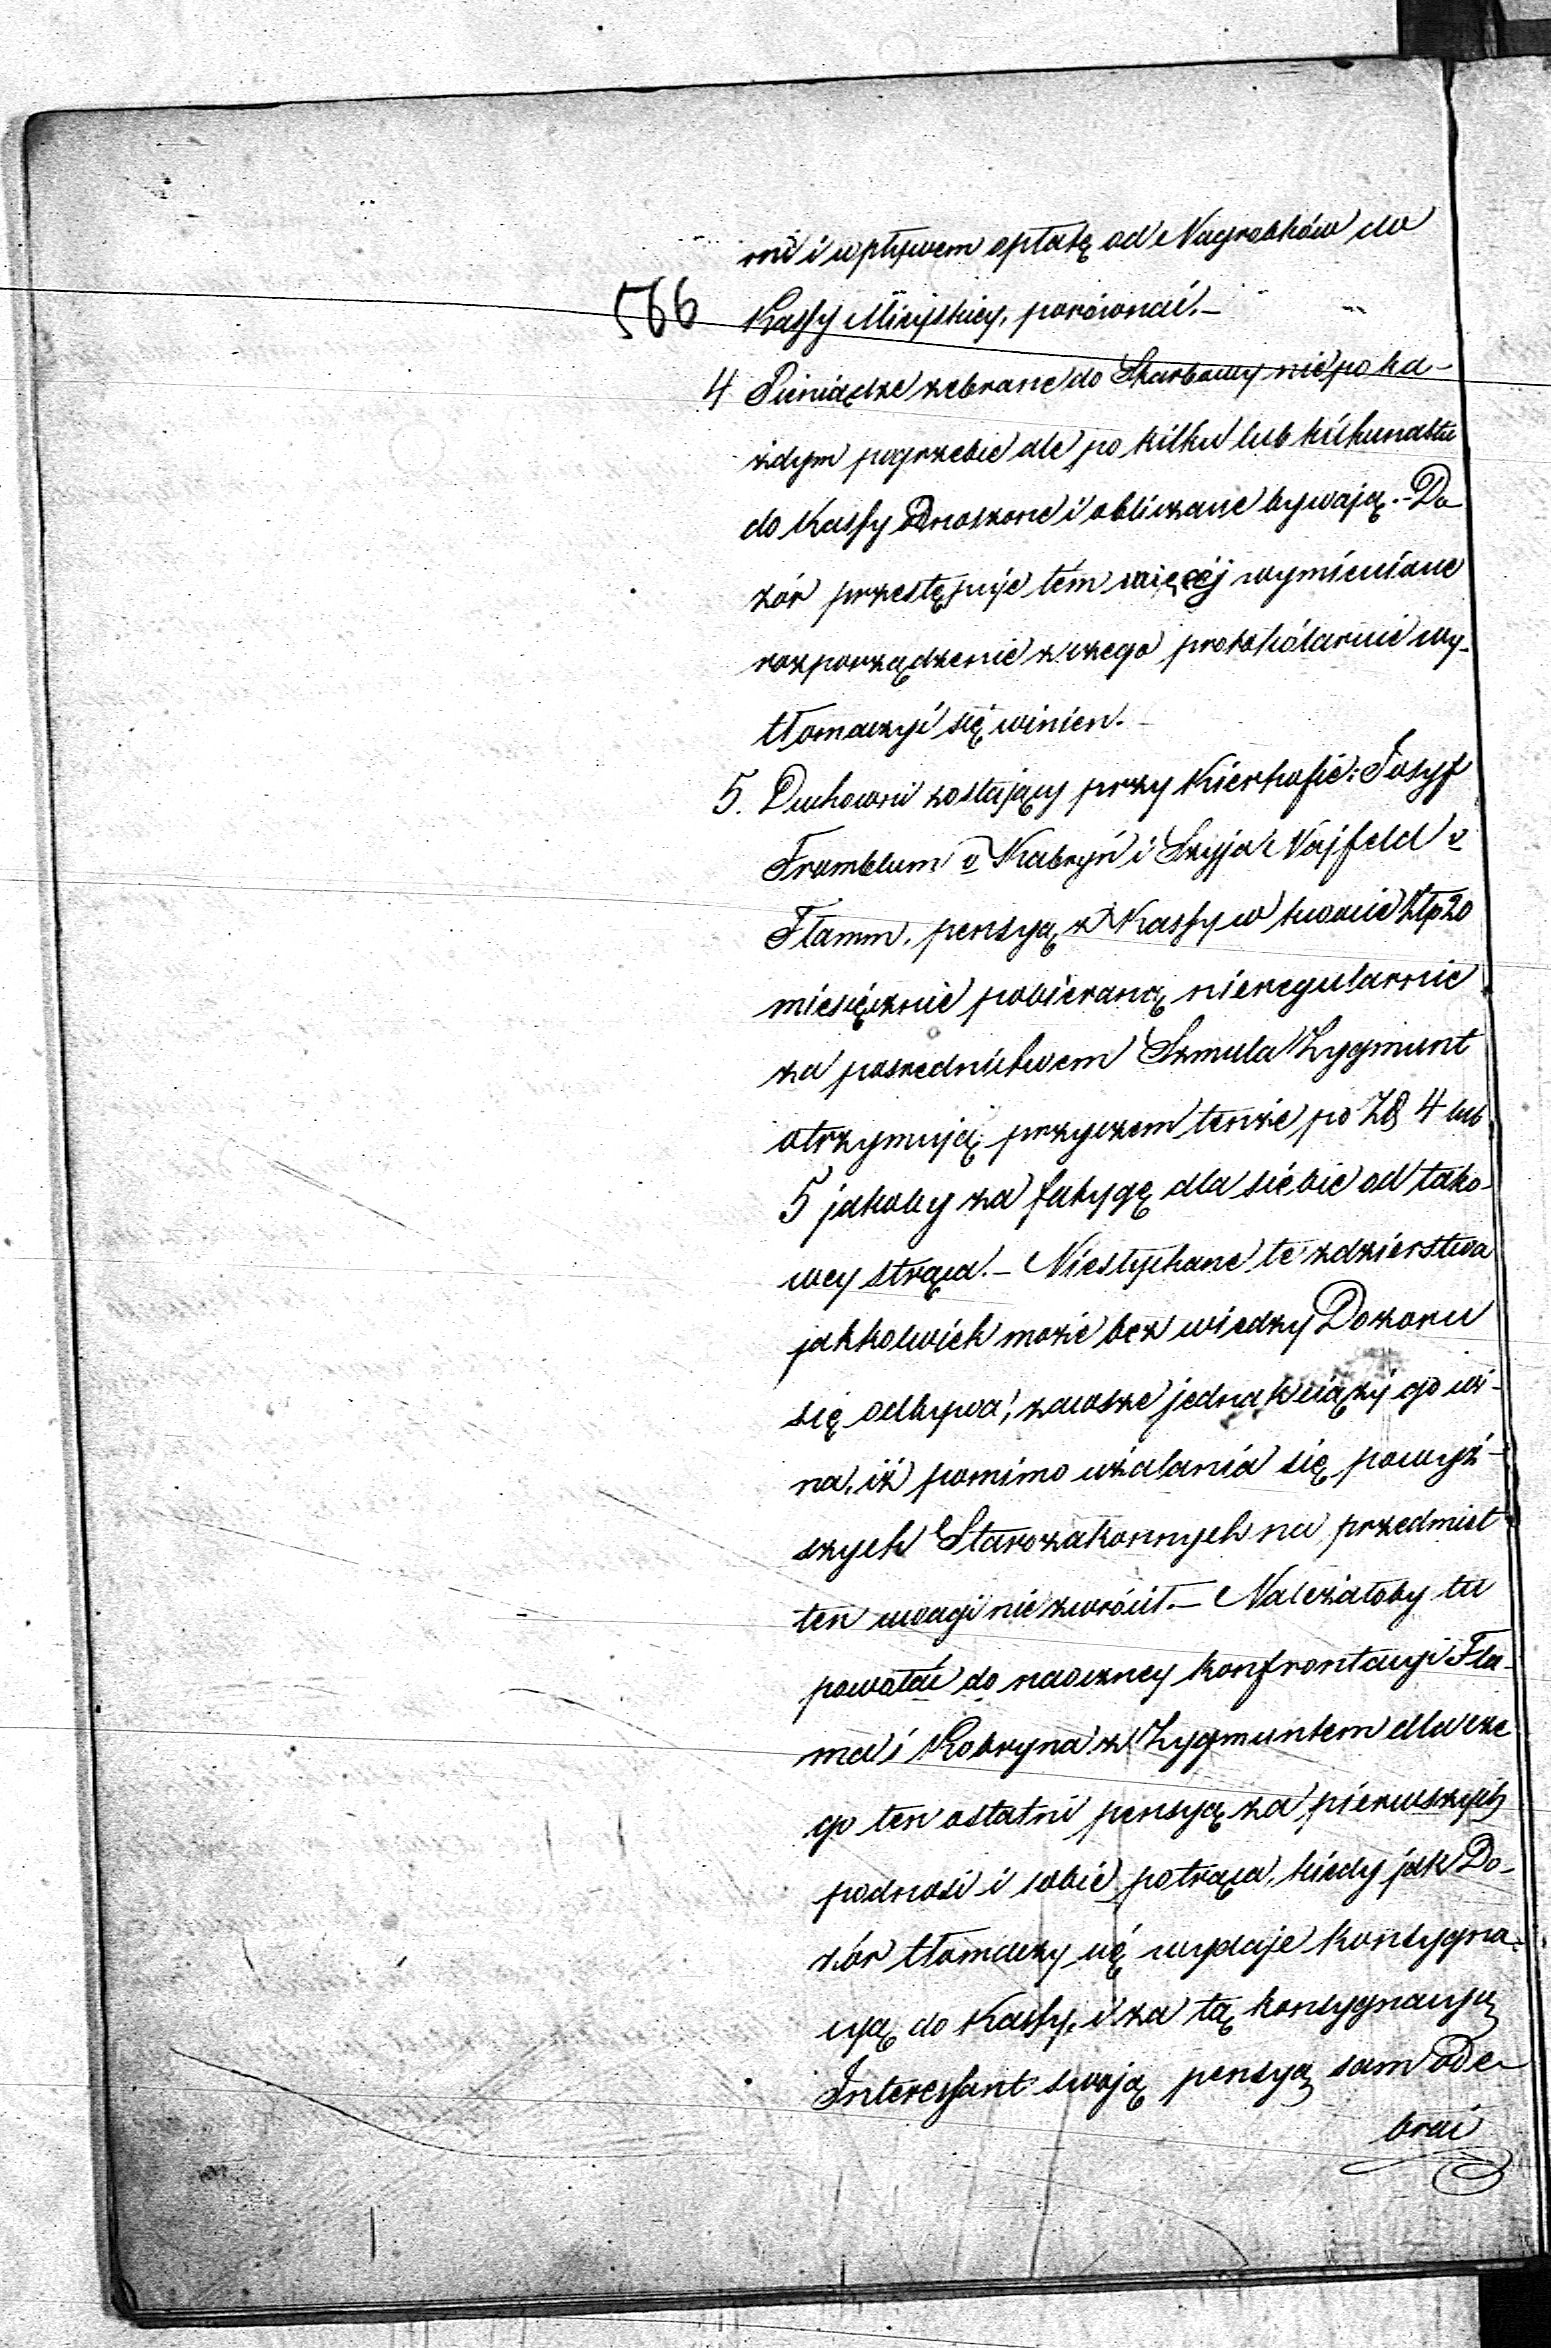 mi i wpływem opłatę od Nagrobków do
566
Kassy Mieyskiey, porównać.—
4 Pieniądze zebrane do Skarbony nie po ka-
żdym pogrzebie ale po kilku lub kilkunastu
do Kassy wnoszone i obliczane bywają.- Do
zór przestępuje tém więcéj wymienione
rozporządzenie z czego protokólarnie wy-
tłomaczyć się winien.
5. Duchowni zostający przy Kierkofie: Josyf
Fromblum v Kabryń i Szyja Najfeld v
Flamm, pensyą z Kassy w kwocie Złp 20
miesięcznie pobieraną nieregularnie
za posrednictwem Szmula Zygmunt
otrzymują przyczem tenże po Zł 4 lub
5 jakoby za fatygę dla siebie od tako-
wey strąca.— Niesłychane te zdzierstwa
jakkolwiek może bez wiedzy Dozoru
się odbywa, zawsze jednak ciąży go wi-
na, iż pomimo użalania się powyż-
szych Starozakonnych na przedmiot
ten uwagi nie zwrócił.— Należałoby tu
powołać do naoczney konfrontacyi Fla-
ma i Kobryna z Zygmuntem dla cze
go ten ostatni pensyą za pierwszych
podnosi i sobie potrąca, kiedy jak Do-
zór tłomaczy się wydaje konsygna-
cyą do Kassy, i za tą konsygnacyą
Interessant swoją pensyą sam ode-
brać